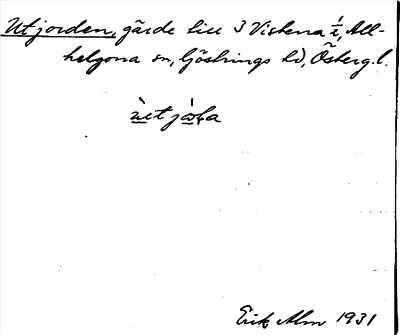 Utjorden, gärde till 3 Vistena 1/2, All-
helgona sn, Göstrings hd, Österg. l.
Erik Alm 1931